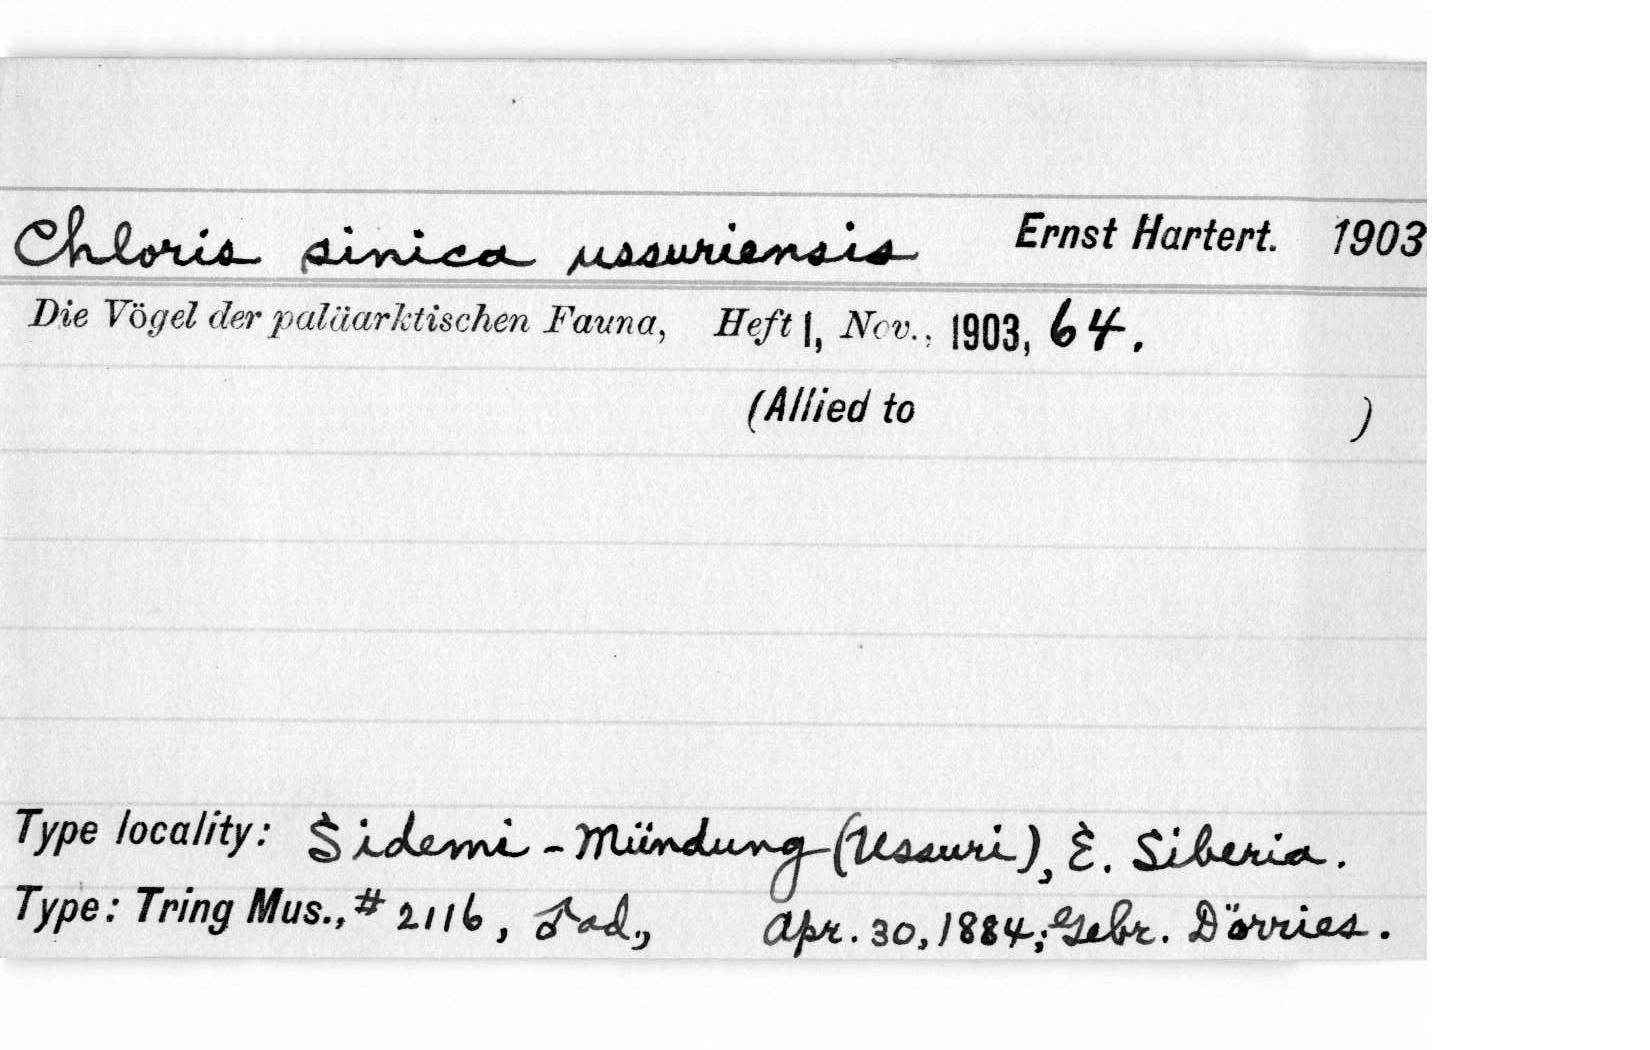 Chloris sinica ussuriensis Ernst Hartert. 1903
Die Vögel der paläarktischen Fauna, Heft 1, Nov., 1903, 64.
(Allied to )
Type locality: Sidemi-Mündung (Ussuri), E. Siberia.
Type: Tring Mus., # 2116, ♂ ad., Apr. 30, 1884; Gebr. Dörries.